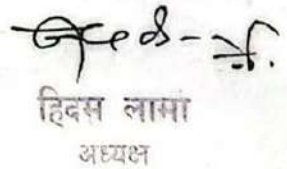 हिदस लामा
अध्यक्ष